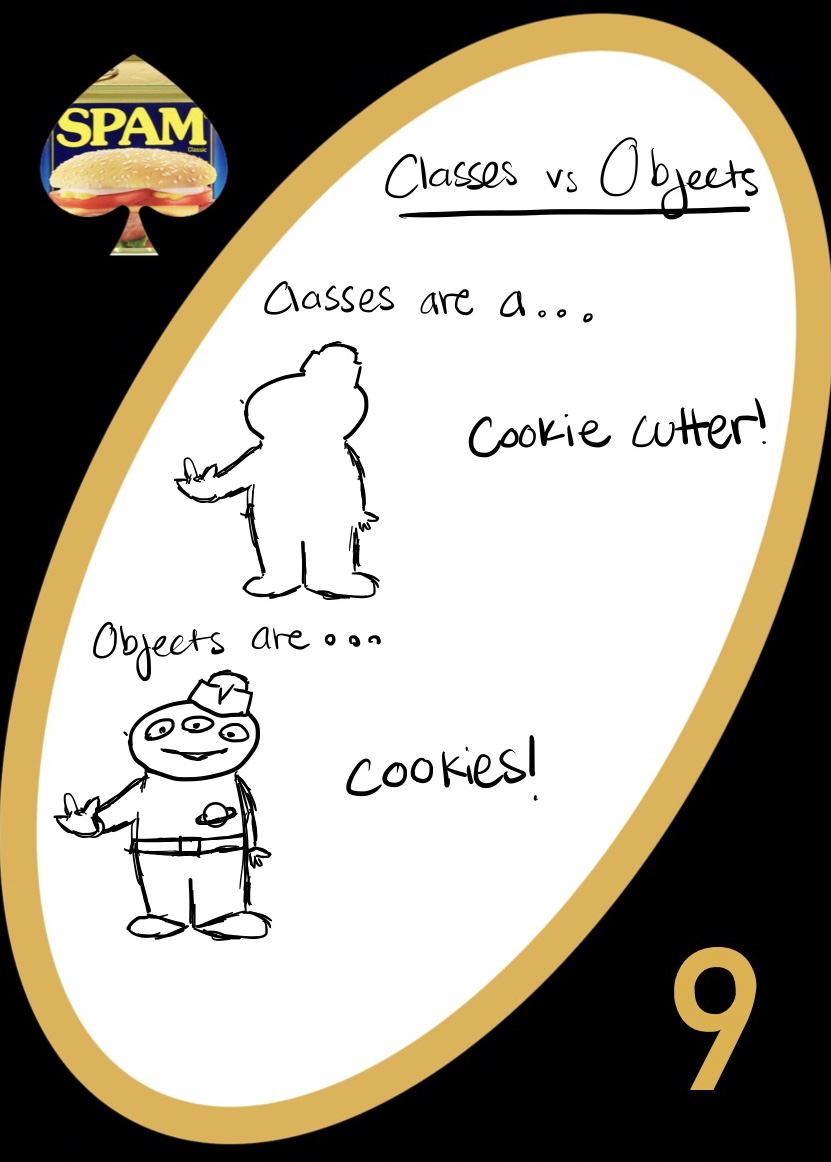 SPAM
Classic
Classes vs Objects
Classes are a...
Cookie cutter!
Objects are...
cookies!
9